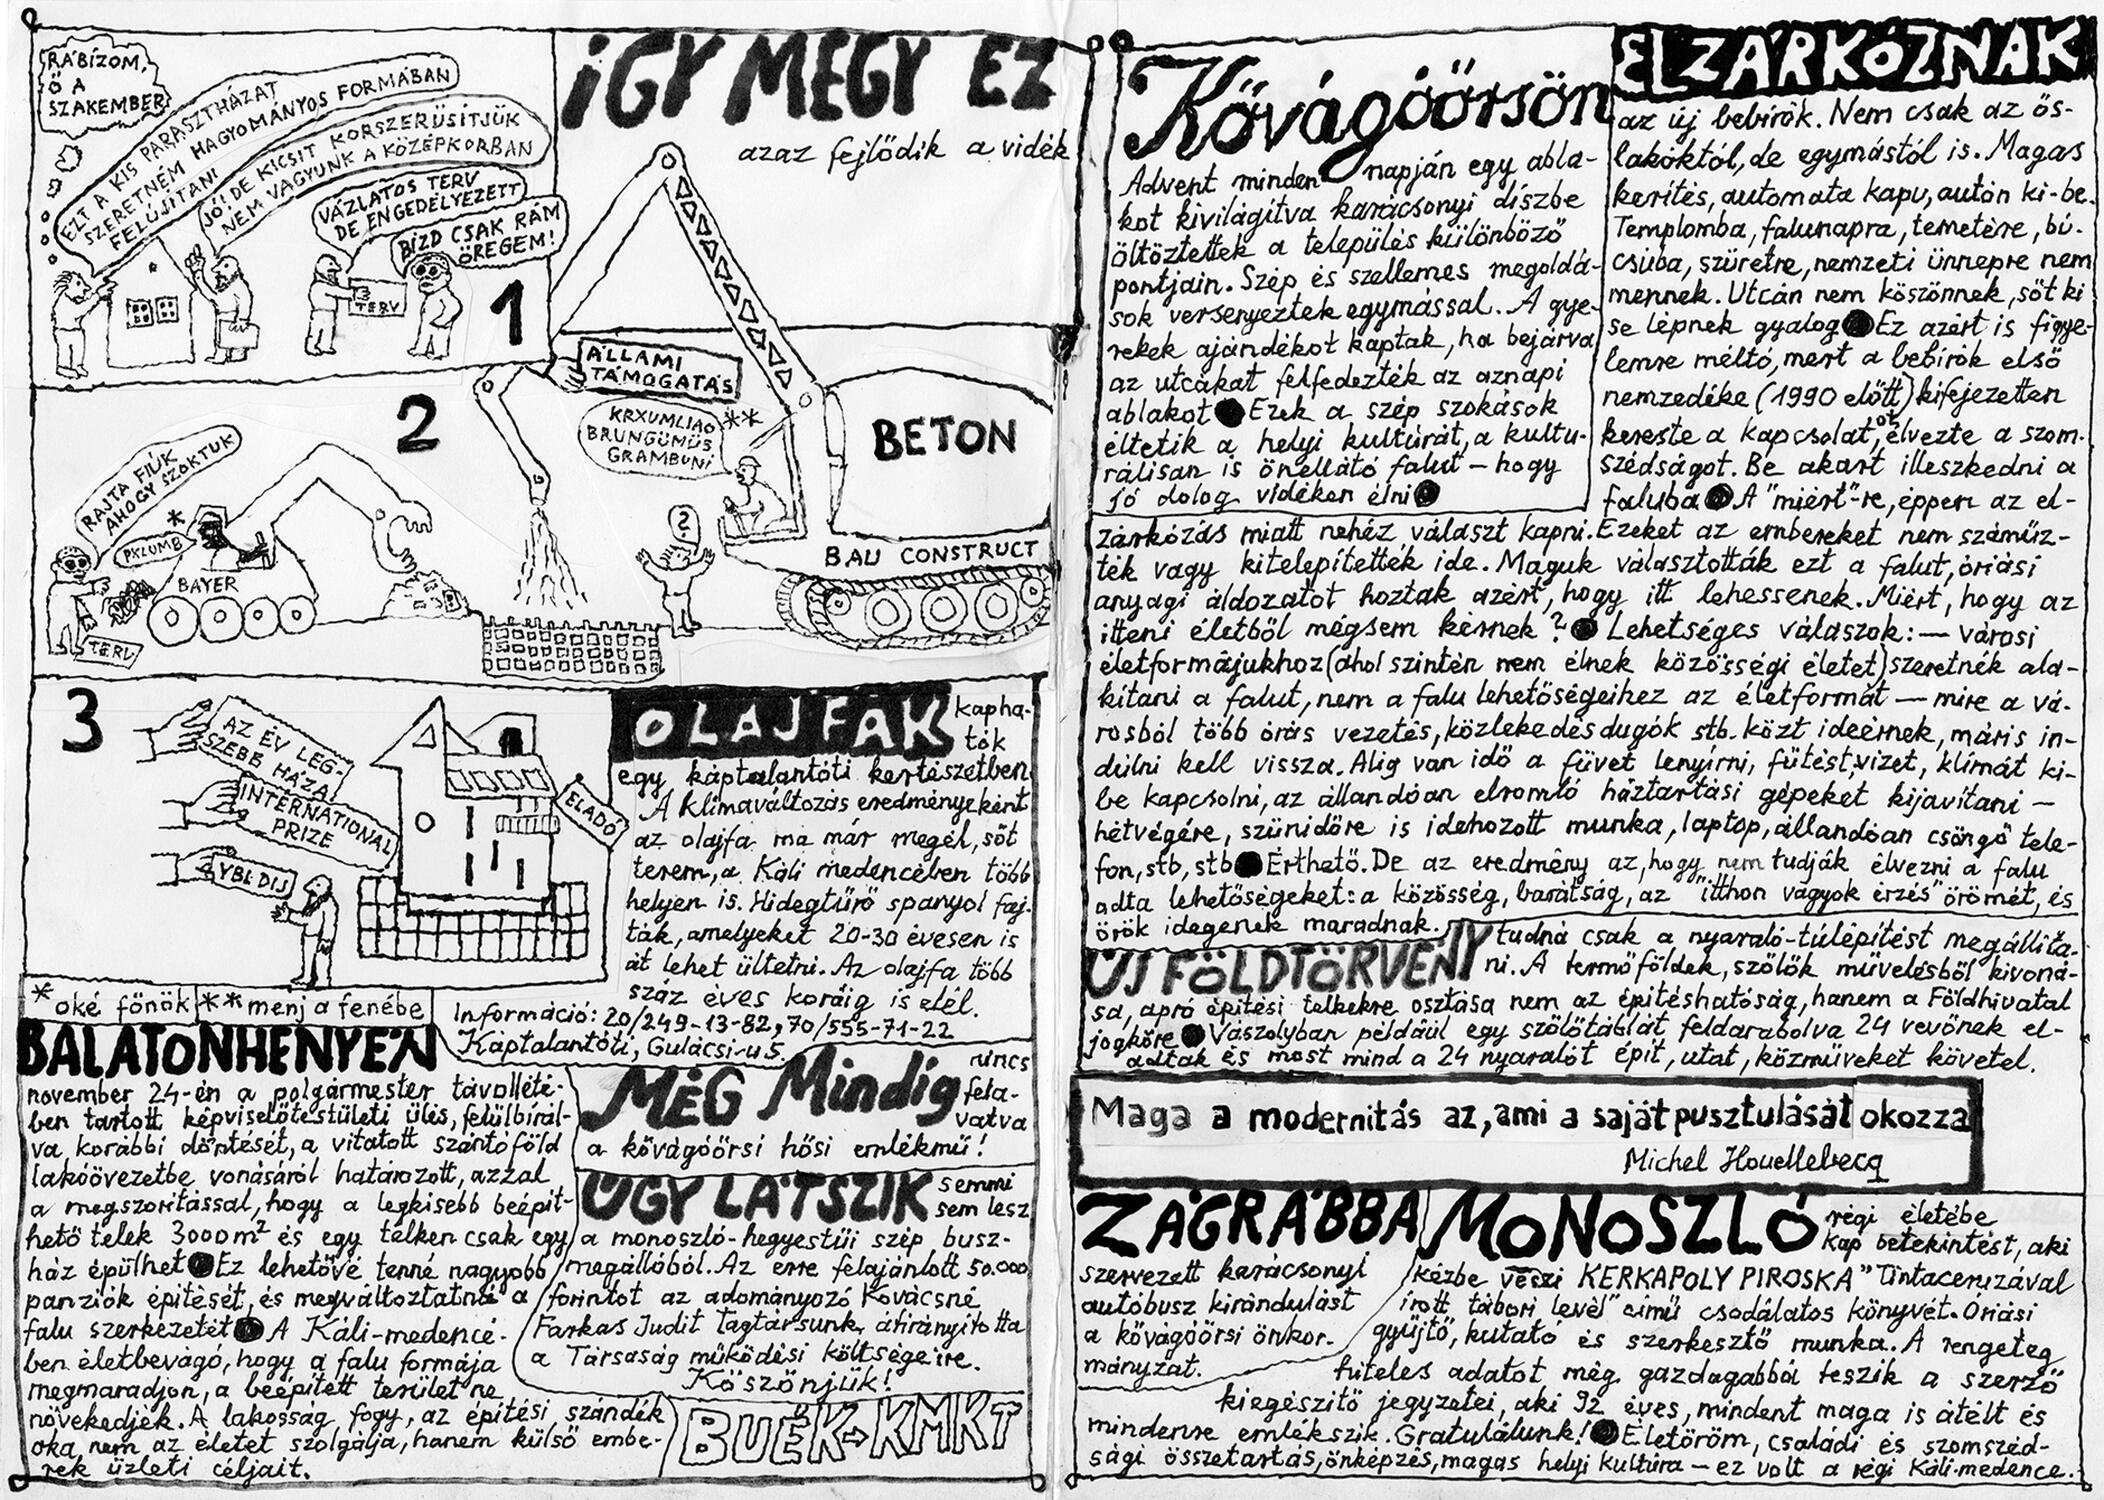 RÁBÍZOM,
Ő A
SZAKEMBER
EZT A KIS PARASZTHÁZAT
SZERETNÉM HAGYOMÁNYOS FORMÁBAN
FELÚJÍTANI
JÓ, DE KICSIT KORSZERŰSÍTJÜK
NEM VAGYUNK A KÖZÉPKORBAN
VÁZLATOS TERV
DE ENGEDÉLYEZETT
BÍZD CSAK RÁM
ÖREGEM!
TERV
1
ÍGY MEGY EZ
azaz fejlődik a vidék
2
ÁLLAMI
TÁMOGATÁS
KRXUMLIAO
BRUNGÜMÜS
GRAMBUNI
**
BETON
BAU CONSTRUCT
?
RAJTA FIÚK
AHOGY SZOKTUK
*
PXLUMB
BAYER
TERV
3
AZ ÉV LEG-
SZEBB HÁZA
INTERNATIONAL
PRIZE
YBL DIJ
ELADÓ
* oké főnök
** menj a fenébe
OLAJFÁK kapha-
tók
egy káptalantóti kertészetben
A klímaváltozás eredményeként
az olajfa ma már megél, sőt
terem, a Káli medencében több
helyen is. Hidegtűrő spanyol faj-
ták, amelyeket 20-30 évesen is
át lehet ültetni. Az olajfa több
száz éves koráig is elél.
Információ: 20/249-13-82, 70/555-71-22
Káptalantóti, Gulácsi-u 5.
BALATONHENYÉN
november 24-én a polgármester távollété-
ben tartott képviselőtestületi ülés, felülbírál-
va korábbi döntését, a vitatott szántóföld
lakóövezetbe vonásáról határozott, azzal
a megszorítással, hogy a legkisebb beépít-
hető telek 3000 m² és egy telken csak egy
ház épülhet ● Ez lehetővé tenné nagyobb
panziók építését, és megváltoztatná a
falu szerkezetét ● A Káli-medencé-
ben életbevágó, hogy a falu formája
megmaradjon, a beépített terület ne
növekedjék. A lakosság fogy, az építési szándék
oka nem az életet szolgálja, hanem külső embe-
rek üzleti céljait.
MÉG Mindig nincs
fela-
vatva
a kővágóörsi hősi emlékmű!
ÚGY LÁTSZIK semmi
sem lesz
a monoszló-hegyestűi szép busz-
megállóból. Az erre felajánlott 50.000
forintot az adományozó Kovácsné
Farkas Judit tagtársunk átirányította
a Társaság működési költségeire.
Köszönjük!
BUÉK→KMKT
Kővágóörsön
Advent minden napján egy abla-
kot kivilágítva karácsonyi díszbe
öltöztettek a település különböző
pontjain. Szép és szellemes megoldá-
sok versenyeztek egymással. A gye-
rekek ajándékot kaptak, ha bejárva
az utcákat felfedezték az aznapi
ablakot ● Ezek a szép szokások
éltetik a helyi kultúrát, a kultu-
rálisan is önellátó falut – hogy
jó dolog vidéken élni ●
ELZÁRKÓZNAK
az új bebírók. Nem csak az ős-
lakóktól, de egymástól is. Magas
kerítés, automata kapu, autón ki-be.
Templomba, falunapra, temetésre, bú-
csúba, szüretre, nemzeti ünnepre nem
mennek. Utcán nem köszönnek, sőt ki
se lépnek gyalog ● Ez azért is figye-
lemre méltó, mert a bebírók első
nemzedéke (1990 előtt) kifejezetten
kereste a kapcsolatot, élvezte a szom-
szédságot. Be akart illeszkedni a
faluba ● A "miért"-re, éppen az el-
zárkózás miatt nehéz választ kapni. Ezeket az embereket nem száműz-
ték vagy kitelepítették ide. Maguk választották ezt a falut, óriási
anyagi áldozatot hoztak azért, hogy itt lehessenek. Miért, hogy az
itteni életből mégsem kérnek? ● Lehetséges válaszok: – városi
életformájukhoz (ahol szintén nem élnek közösségi életet) szeretnék ala-
kítani a falut, nem a falu lehetőségeihez az életformát – mire a vá-
rosból több órás vezetés, közlekedés dugók stb. közt ideérnek, máris in-
dulni kell vissza. Alig van idő a füvet lenyírni, fűtést, vizet, klímát ki-
be kapcsolni, az állandóan elromló háztartási gépeket kijavítani –
hétvégére, szünidőre is idehozott munka, laptop, állandóan csöngő tele-
fon, stb, stb ● Érthető. De az eredmény az, hogy nem tudják élvezni a falu
adta lehetőségeket: a közösség, barátság, az "itthon vagyok érzés" örömét, és
örök idegenek maradnak.
ÚJ FÖLDTÖRVÉNY tudná csak a nyaraló-túlépítést megállíta-
ni. A termőföldek, szőlők művelésből kivoná-
sa, apró építési telkekre osztása nem az építéshatóság, hanem a Földhivatal
jogköre ● Vászolyban például egy szőlőtáblát feldarabolva 24 vevőnek el-
adtak és most mind a 24 nyaralót épít, utat, közműveket követel.
Maga a modernitás az, ami a saját pusztulását okozza
Michel Houellebecq
ZÁGRÁBBA
szervezett karácsonyi
autóbusz kirándulást
a kővágóörsi önkor-
mányzat.
MONOSZLÓ régi életébe
kap betekintést, aki
kézbe veszi KERKAPOLY PIROSKA "Tintaceruzával
írott tábori levél" című csodálatos könyvét. Óriási
gyűjtő, kutató és szerkesztő munka. A rengeteg
hiteles adatot még gazdagabbá teszik a szerző
kiegészítő jegyzetei, aki 92 éves, mindent maga is átélt és
mindenre emlékszik. Gratulálunk! ● Életöröm, családi és szomszéd-
sági összetartás, önképzés, magas helyi kultúra – ez volt a régi Káli-medence.